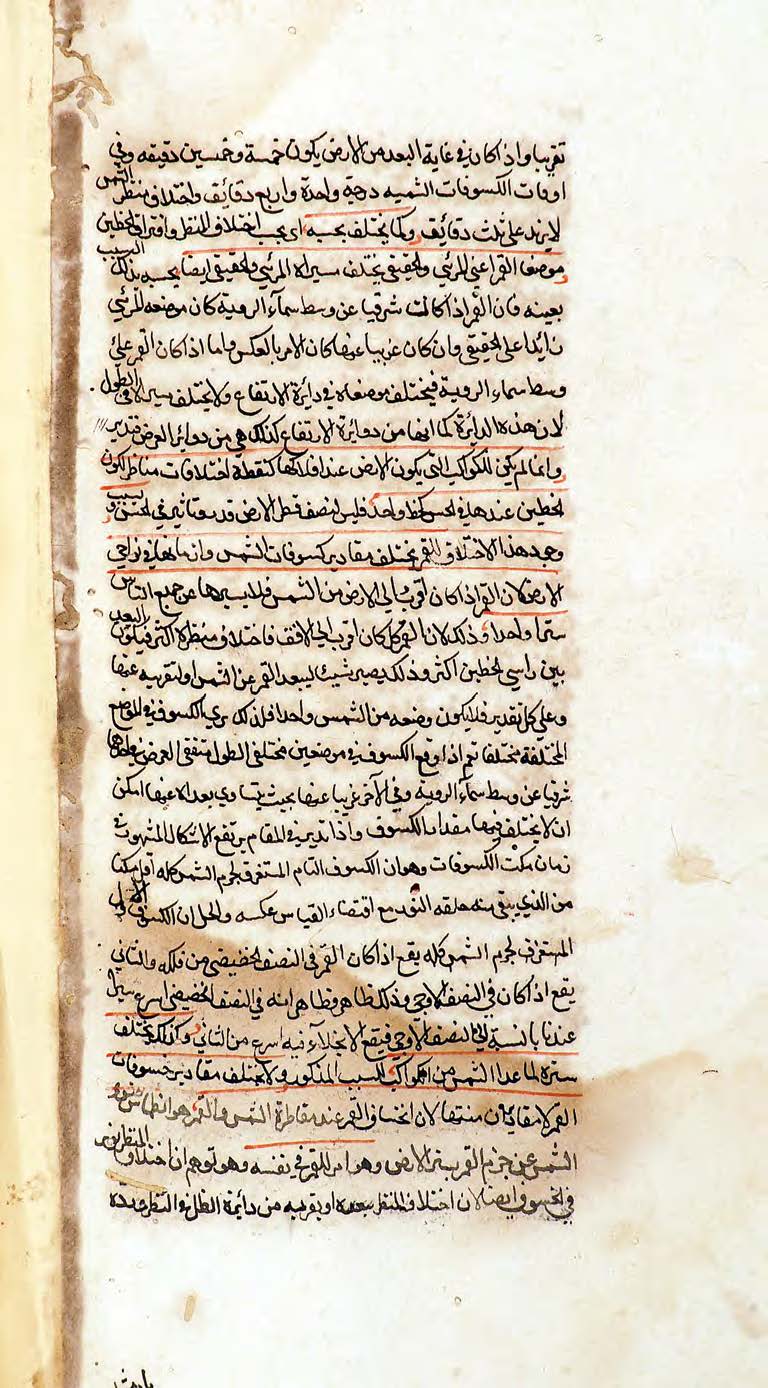 تقريبا واذا كان في غاية البعد من الارض يكون خمسة وخمسين دقيقه وفي
اوقات الكسوفات الشمسيه درجة واحدة واربع دقائق واختلاف منظر الشمس
لا يزيد على ثلث دقائق وكما يختلف بحسبه اى بحسب اختلاف المنظر وافتراق الخطين
موضعا القمر اعني المرئي والحقيقي يختلف سيراه المرئي والحقيقي ايضا بحسبه بذلك السبب
بعينه فان القمر اذا كانت شرقيا عن وسط سمآء الروية كان موضعه المرئي
زايدا على الحقيقي وان كان غربيا عنها كان الامر بالعكس واما اذا كان القمر على
وسط سماء الروية فيختلف موضعاه في دايرة الارتفاع ولا يختلف سيراه في الطول
لان هذه الدائرة كما انها من دوايرة الارتفاع كذلك هي من دوائر العرض فتدبر
وانما لم يكن للكواكب التي يكون الارض عند افلاكها كنقطة اختلافات مناظر لكون
الخطين عندها في الحس كخط واحد فليس لنصف قطر الارض قدر وتاثير في الحس و بسبب
وجود هذا الاختلاف للقمر يختلف مقادير كسوفات الشمس وازمانها في نواحي
الارض لان القمر اذا كان اقرب الى الارض من الشمس فلا يسترها عن جميع الناس
سترا واحدا وذلك لان القمر كل كان اقرب الى الافق فاختلاف منظره اكثر فيكون البعد
بين راسي الخطين اكثر وذلك يصير سببا لبعد القمر عن الشمس او لتقربه عنها
وعلى كل تقدير فلا يكون وضعه من الشمس واحدا فلذلك يرى الكسوف في المواضع
المختلفة مختلفا نعم اذا وقع الكسوف في موضعين مختلفى الطول متفقى العرض في احدهما
شرقيا عن وسط سمآء الروية وفي الآخر غربيا عنها بحيث يتساوي بعداه عنها امكن
ان لا يختلف فيهما مقدار الكسوف واذا تدبر في المقام يرتفع الاشكال المشهور في
زمان مكث الكسوفات وهو ان الكسوف التام المستغرق لجرم الشمس كله اقل مكثا
من الذي يبقى منه حلقه النور مع اقتضاء القياس عكسه والحل ان الكسوف الاول
المستغرق لجرم الشمس كله يقع اذا كان القمر في النصف الحضيضي من فلكه والثاني
يقع اذا كان في النصف الاوجي وذلك ظاهر وظاهر انه في النصف الحضيضي اسرع سيرا
عندنا بالنسبة الى النصف الاوجي فيقع الانجلآء فيه اسرع من الثاني وكذلك يختلف
ستره لما عدا الشمس من الكواكب للسبب المذكور ولا يختلف مقادير خسوفات
القمر لا مقادير ان منتها لان انخساف القمر عند مقاطرة الشمس والقمر هو انطماس نور
الشمس عن جرم القمر بستر الارض وهو امر للقمر في نفسه وهو توهم ان اختلاف المنظر يؤثر
في الخسوف ايضا لان اختلاف المنظر يبعده او يقربه من دائرة الظل في النظر